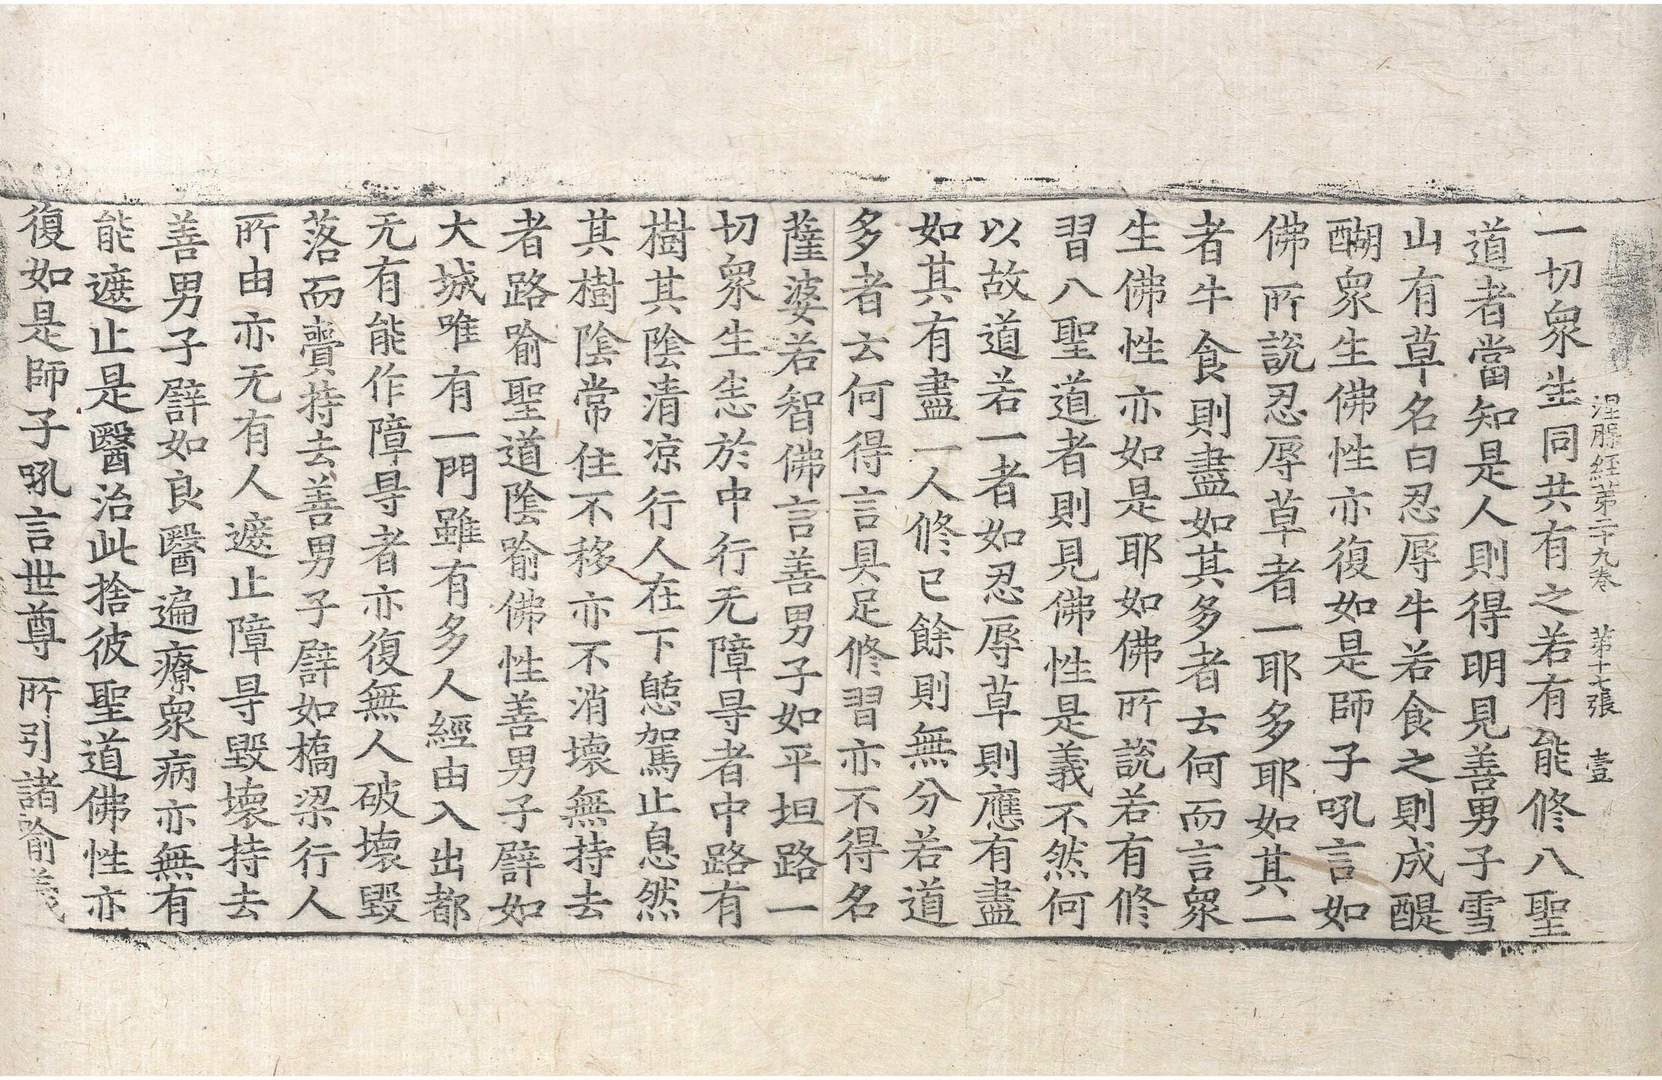 涅槃經第二十九卷 第十七張 壹
一切衆生同共有之若有能修八聖
道者當知是人則得明見善男子雪
山有草名曰忍辱牛若食之則成醍
醐衆生佛性亦復如是師子吼言如
佛所說忍辱草者一耶多耶如其一
者牛食則盡如其多者云何而言衆
生佛性亦如是耶如佛所說若有修
習八聖道者則見佛性是義不然何
以故道若一者如忍辱草則應有盡
如其有盡一人修已餘則無分若道
多者云何得言具足修習亦不得名
薩婆若智佛言善男子如平坦路一
切衆生悉於中行无障㝵者中路有
樹其陰清凉行人在下憩駕止息然
其樹陰常住不移亦不消壞無持去
者路喻聖道陰喻佛性善男子譬如
大城唯有一門雖有多人經由入出都
无有能作障㝵者亦復無人破壞毀
落而賷持去善男子譬如橋梁行人
所由亦无有人遮止障㝵毀壞持去
善男子譬如良醫遍療衆病亦無有
能遮止是醫治此捨彼聖道佛性亦
復如是師子吼言世尊所引諸喻義